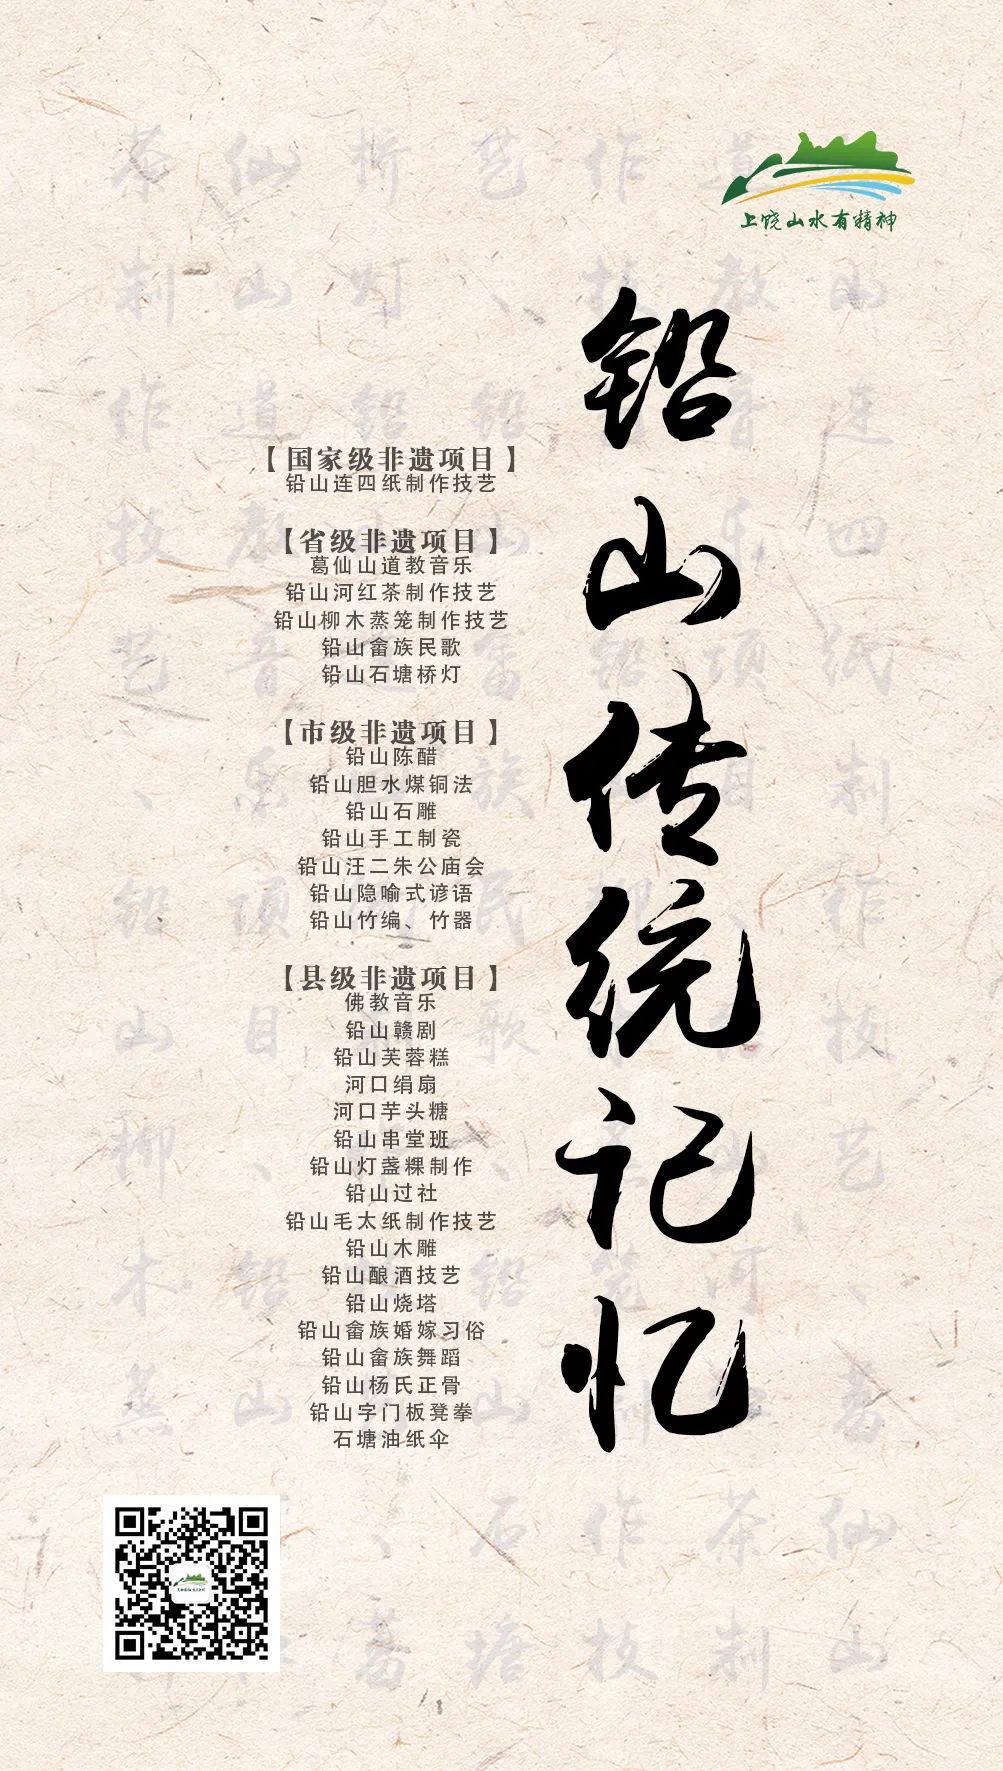 上饶山水有精神
铅山传统记忆
【国家级非遗项目】
铅山连四纸制作技艺
【省级非遗项目】
葛仙山道教音乐
铅山河红茶制作技艺
铅山柳木蒸笼制作技艺
铅山畲族民歌
铅山石塘桥灯
【市级非遗项目】
铅山陈醋
铅山胆水煤铜法
铅山石雕
铅山手工制瓷
铅山汪二朱公庙会
铅山隐喻式谚语
铅山竹编、竹器
【县级非遗项目】
佛教音乐
铅山赣剧
铅山芙蓉糕
河口绢扇
河口芋头糖
铅山串堂班
铅山灯盏粿制作
铅山过社
铅山毛太纸制作技艺
铅山木雕
铅山酿酒技艺
铅山烧塔
铅山畲族婚嫁习俗
铅山畲族舞蹈
铅山杨氏正骨
铅山字门板凳拳
石塘油纸伞